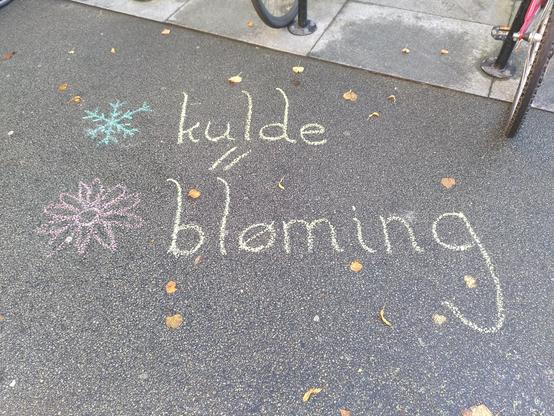 kulde
//
bløming